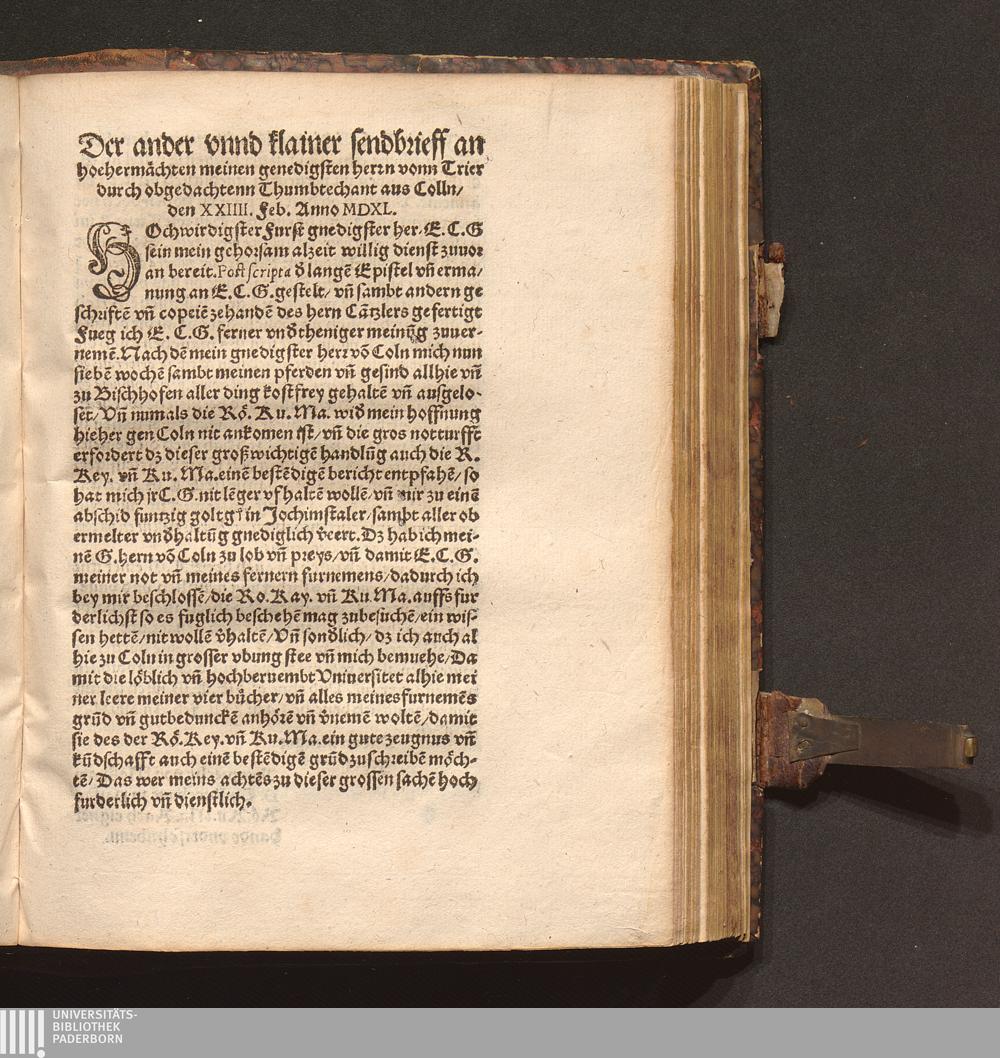 Der ander vnnd klainer sendbrieff an
hochermächten meinen genedigsten herrn vonn Trier
durch obgedachtenn Thumbtechant aus Colln/
den XXIIII. Feb. Anno MDXL.
HOchwirdigster Furst gnedigster her/E.C.G
sein mein gehorsam alzeit willig dienst zuuor
an bereit. Post scripta ð langẽ Epistel vñ erma/
nung an E.C.G. gestelt/ vñ sambt andern ge
schriftẽ vñ copeiẽ zehandẽ des hern Cãtzlers gefertigt
Fueg ich E. C.G. ferner vnðtheniger meinũg zuuer-
nemẽ. Nach dẽ mein gnedigster herr võ Coln mich nun
siebẽ wochẽ sambt meinen pferden vñ gesind allhie vñ
zu Bischhofen aller ding kostfrey gehaltẽ vñ ausgelo-
set/Vñ numals die Rö. Ku. Ma. wið mein hoffnung
hieher gen Coln nit ankomen ist/vñ die gros notturfft
erfordert dz dieser großwichtigẽ handlũg auch die R.
Key. vñ Ku. Ma. einẽ bestẽdigẽ bericht entpfahẽ/ so
hat mich jr C.G. nit lẽger vfhaltẽ wollẽ/vñ mir zu einẽ
abschid funtzig goltg in Jochimstaler/sampt aller ob
ermelter vnðhaltũg gnediglich v̊eert. Dz hab ich mei-
nẽ G. hern võ Coln zu lob vñ preys/vñ damit E.C.G.
meiner not vñ meines fernern furnemens/dadurch ich
bey mir beschlossẽ/die Ro. Kay. vñ Ku. Ma. auffs fur
derlichst so es fuglich beschehẽ mag zubesuchẽ/ein wis-
sen hettẽ/nit wollẽ v̊haltẽ/Vñ sonðlich/ dz ich auch al
hie zu Coln in grosser vbung stee vñ mich bemuehe/Da
mit die löblich vñ hochberuembt Vniuersitet alhie mei
ner leere meiner vier bücher/vñ alles meines furnemẽs
grũd vñ gutbedunckẽ anhörẽ vñ v̊nemẽ woltẽ/damit
sie des der Rö. Key. vñ Ku. Ma. ein gute zeugnus vñ
kũdschafft auch einẽ bestẽdigẽ grũd zuschreibẽ möch-
tẽ/ Das wer meins achtẽs zu dieser grossen sachẽ hoch
furderlich vñ dienstlich.
UNIVERSITÄTS-
BIBLIOTHEK
PADERBORN